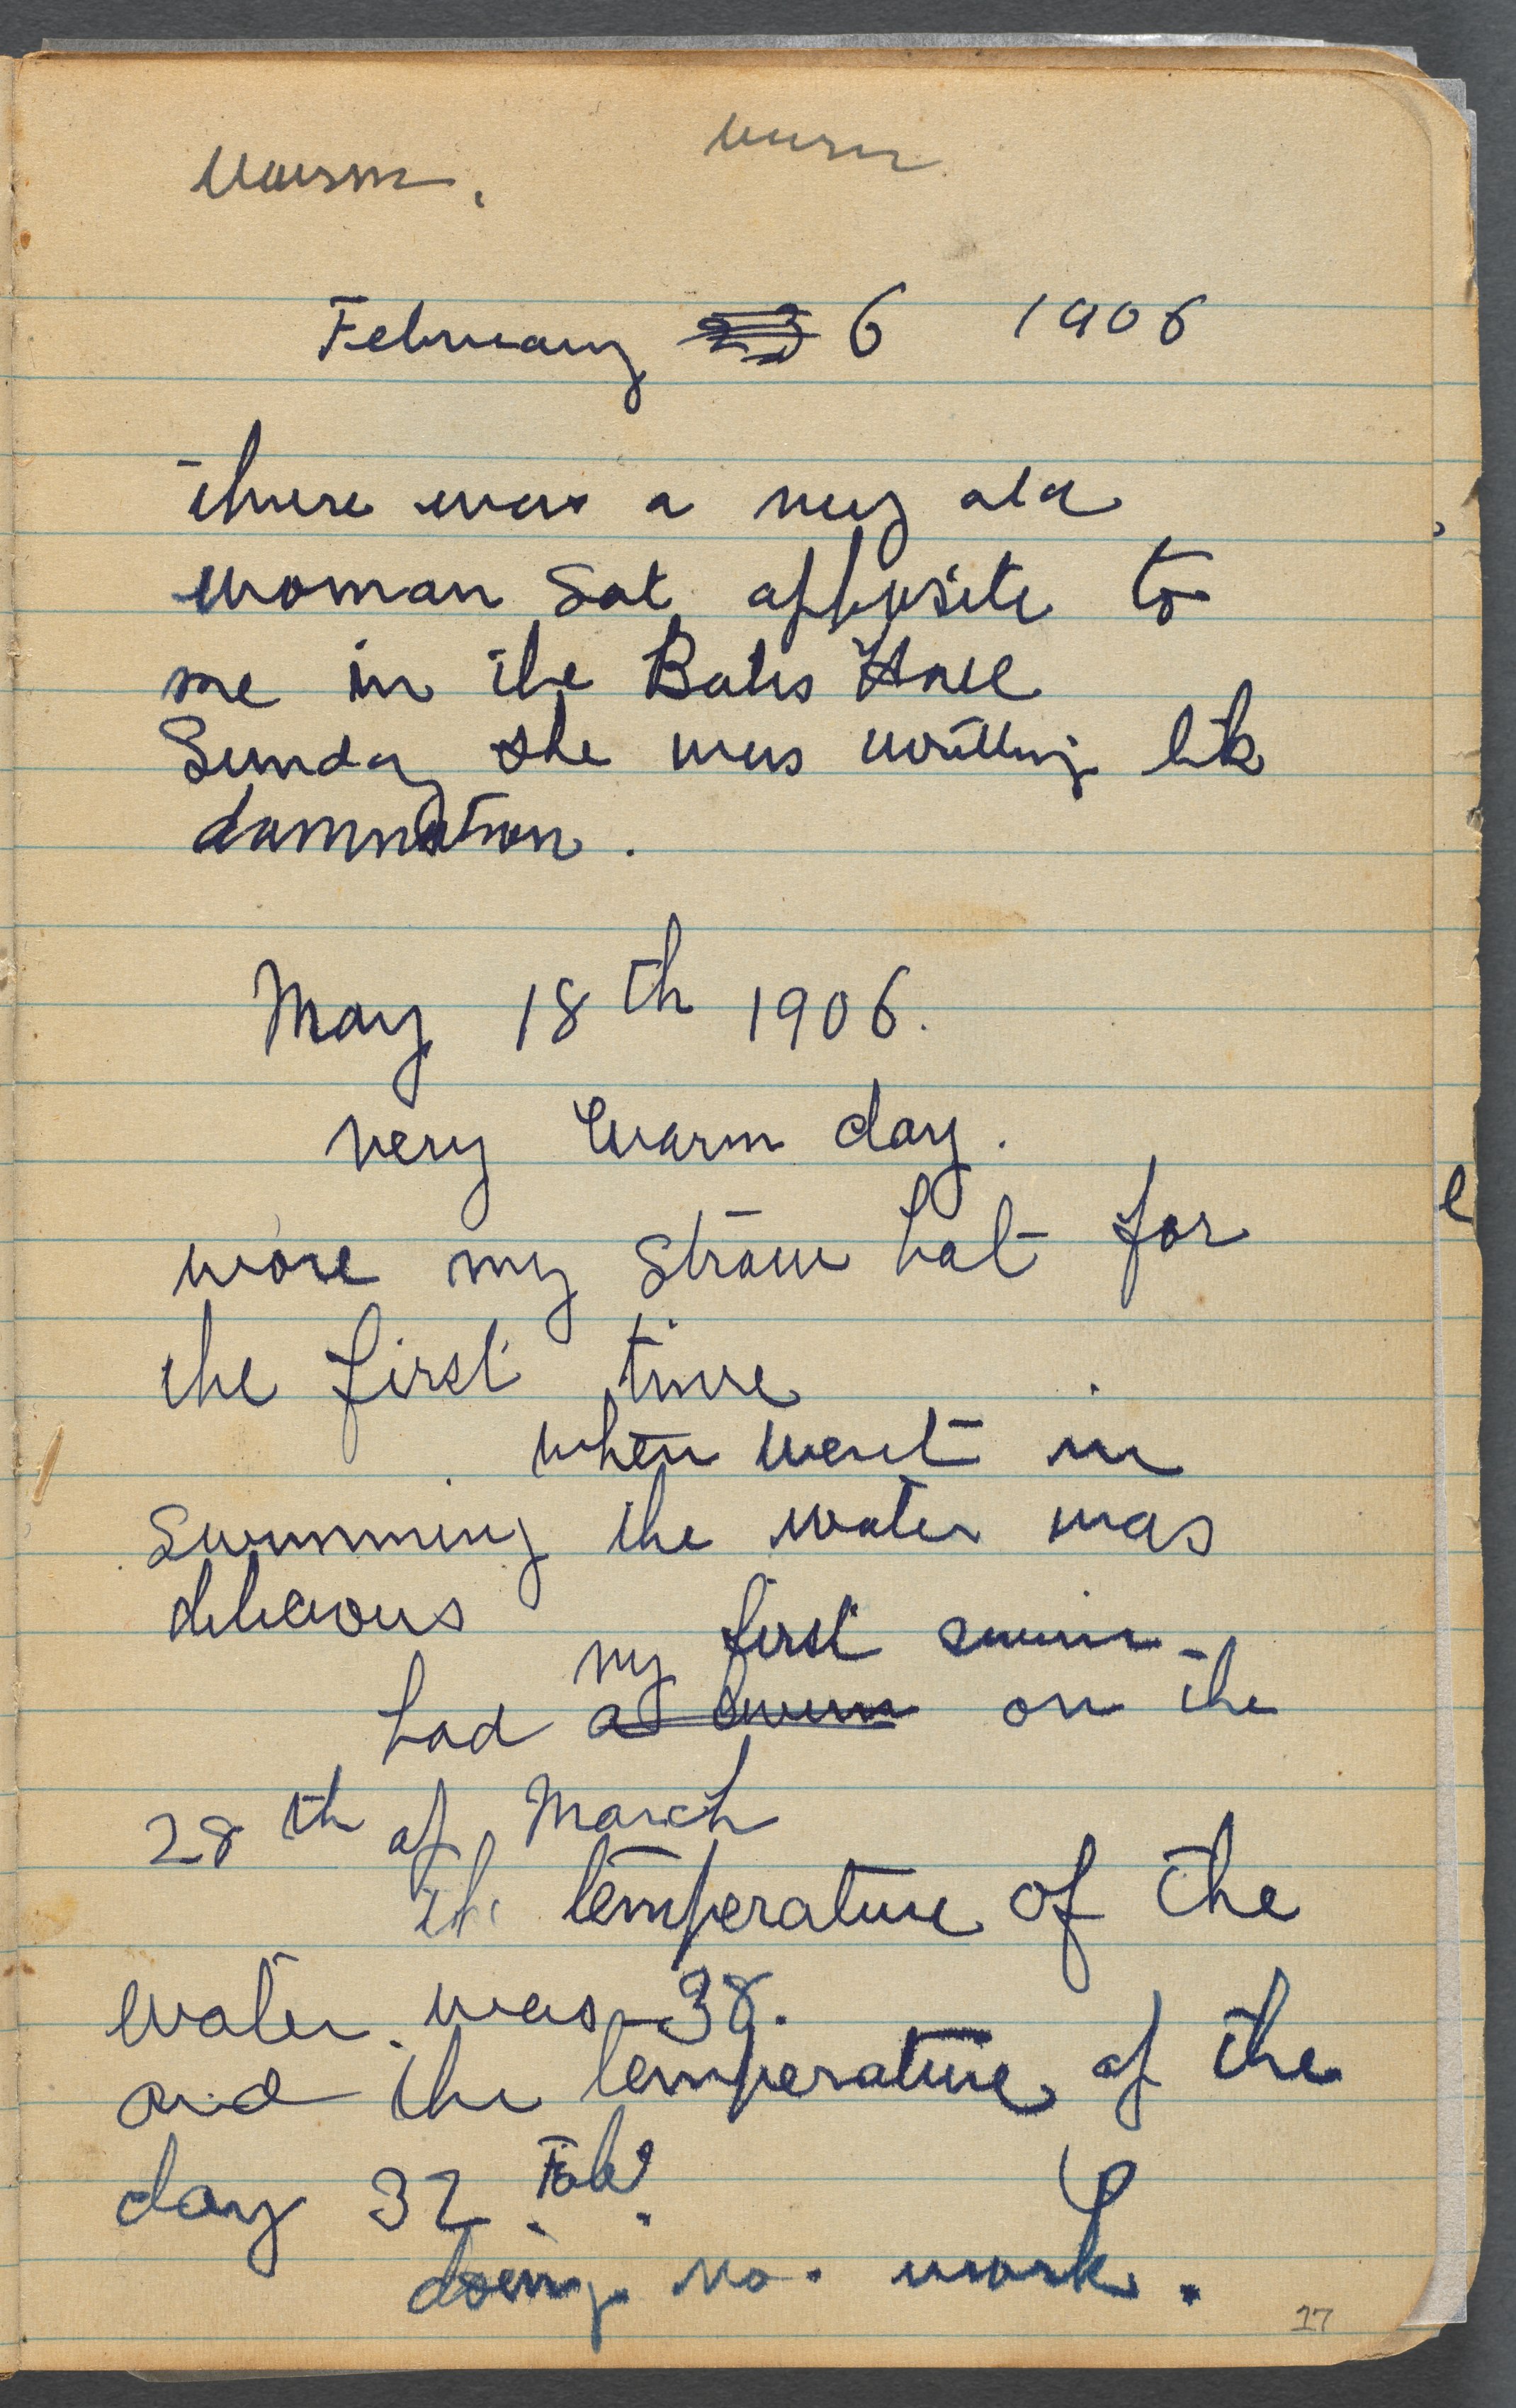 warm. warm
February 23 6 1906
there was a very old
woman sat opposite to
me in the Bates Hall
Sunday she was writting like
damnation.
May 18th 1906.
very warm day.
wore my straw hat for
the first time
when went in
swimming the water was
delicious
my first swim
had a swim on the
28th of March
the temperature of the
water was 38.
and the temperature of the
day 32. Fah.
doing no. work.
17